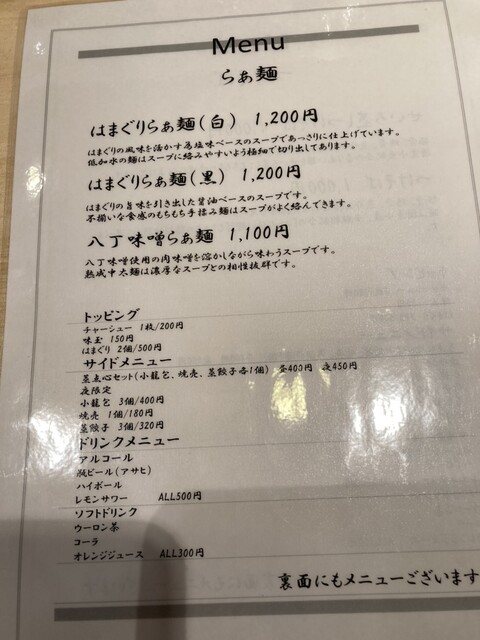 Menu
らぁ麺
はまぐりらぁ麺(白) 1,200円
はまぐりの風味を活かす為塩味ベースのスープであっさりに仕上げています。
低加水の麺はスープに絡みやすいよう極細で切り出してあります。
はまぐりらぁ麺(黒) 1,200円
はまぐりの旨味を引き出した醤油ベースのスープです。
不揃いな食感のもちもち手揉み麺はスープがよく絡んできます。
八丁味噌らぁ麺 1,100円
八丁味噌使用の肉味噌を溶かしながら味わうスープです。
熟成中太麺は濃厚なスープとの相性抜群です。
トッピング
チャーシュー 1枚/200円
味玉 150円
はまぐり 2個/500円
サイドメニュー
蒸点心セット(小籠包、焼売、蒸餃子各1個) 昼400円 夜450円
夜限定
小籠包 3個/400円
焼売 1個/180円
蒸餃子 3個/320円
ドリンクメニュー
アルコール
瓶ビール(アサヒ)
ハイボール
レモンサワー ALL500円
ソフトドリンク
ウーロン茶
コーラ
オレンジジュース ALL300円
裏面にもメニューございます